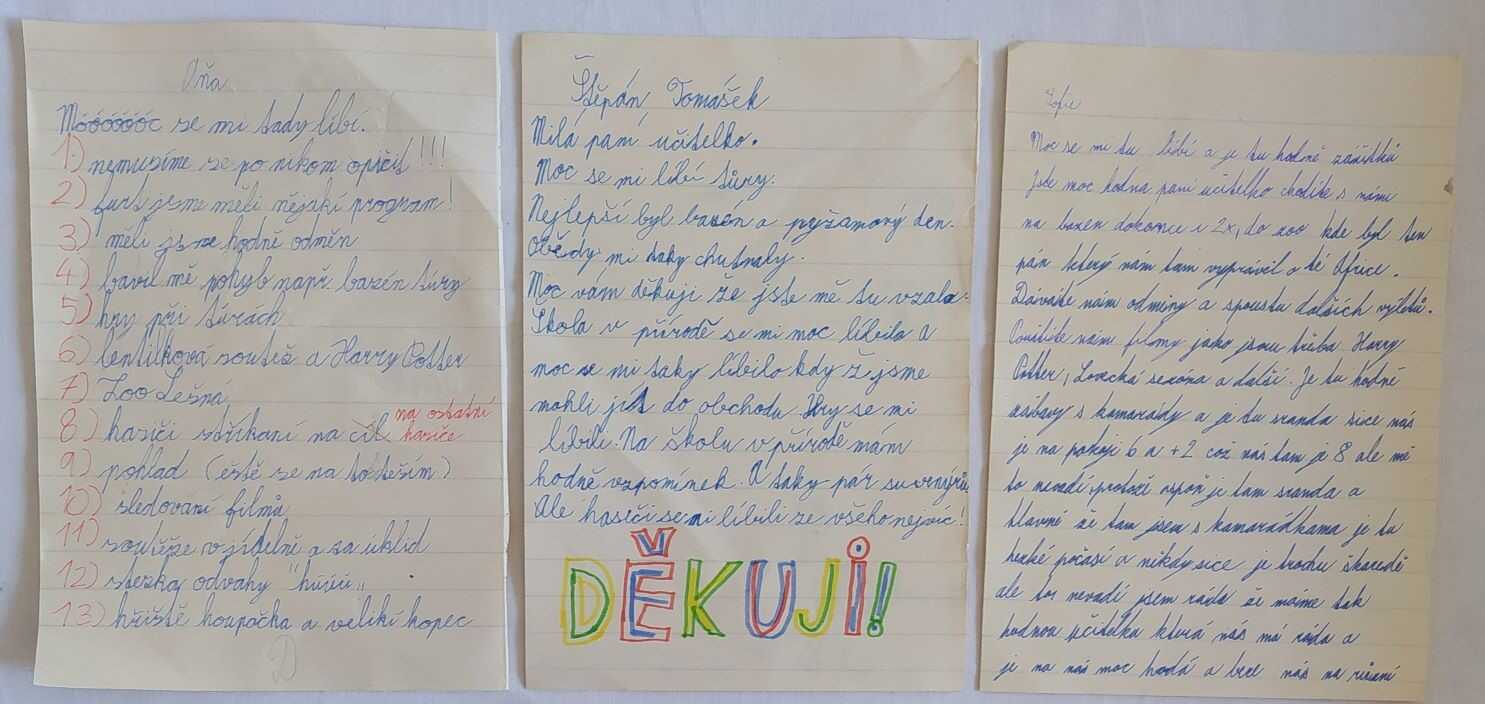 Áňa
Móóóóóóc se mi tady líbí.
1) nemusíme se po nikom opičit!!!
2) furt jsme měli nějakí program!
3) měli jsme hodně odměn
4) bavil mě pohyb např. bazén túry
5) hry při túrách
6) lentilková soutěž a Harry Potter
7) Zoo Lešná
8) hasiči stříkaní na cíl na ostatní hasiče
9) pohlad (eště se na to těším)
10) sledovaní filmů
11) soutěže v jídelně a za úklid
12) stezka odvahy "húúú"
13) hřiště houpačka a velikí kopec
Štěpán Tomášek
Milá paní učitelko.
Moc se mi líbí túry.
Nejlepší byl bazén a pyžamový den.
Obědy mi taky chutnaly.
Moc vam děkuji že jste mě tu vzala.
Škola v přírodě se mi moc líbila a
moc se mi taky líbilo když jsme
mohli jít do obchodu. Hry se mi
líbili. Na školu v přírodě mám
hodně vzpomínek. A taky pár suvenýrů
Ale hasiči se mi líbili ze všeho nejvíc!
DĚKUJI!
Žofie
Moc se mi tu líbí a je tu hodně zážitků
Jste moc hodna paní učitelko chodíte s námi
na bazen dokonce i 2x, do zoo kde byl ten
pán který nam tam vyprávil o té Africe.
Dáváte nám odměny a spoustu dalších výletů.
Pouštíte nám filmy jako jsou třeba Harry
Potter, Lovecká sezóna a další. Je tu hodně
zábavy s kamarády a je tu sranda sice nás
je na pokoji 6 a +2 což nás tam je 8 ale mě
to nevadí protože aspoň je tam sranda a
hlavně že tam jsem s kamarádkama je tu
hezké počasí a někdy sice je trochu škaredě
ale to nevadí jsem ráda že máme tak
hodnou učitelku která nás má ráda a
je na nás moc hodá a bere nás na různí